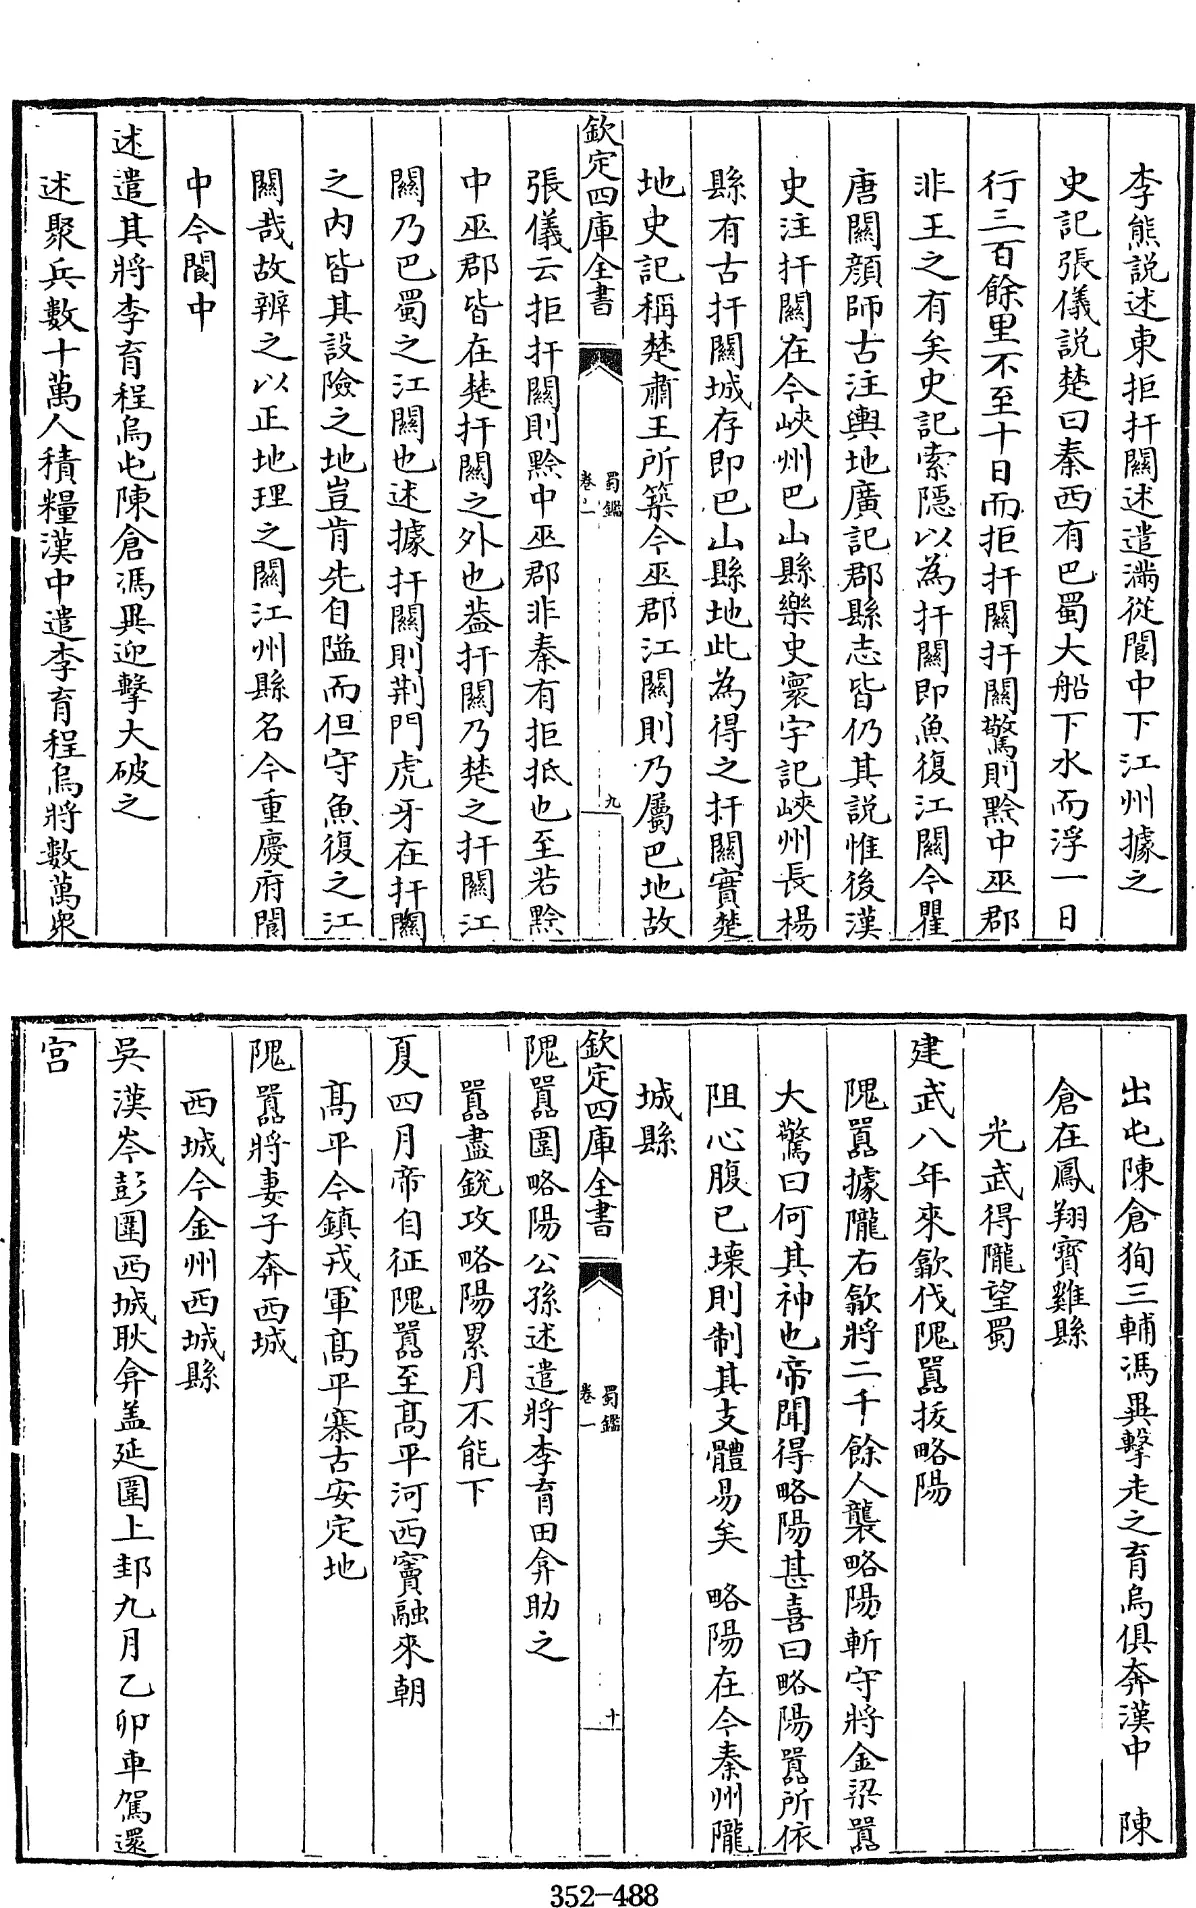 李熊説述東拒扞關述遣滿從閬中下江州據之
史記張儀説楚曰秦西有巴蜀大船下水而浮一日
行三百餘里不至十日而拒扞關扞關驚則黔中巫郡
非王之有矣史記索隱以為扞關即魚復江關今瞿
唐關顔師古注輿地廣記郡縣志皆仍其説惟後漢
史注扞關在今峽州巴山縣樂史寰宇記峽州長楊
縣有古扞關城存即巴山縣地此為得之扞關實楚
地史記稱楚肅王所築今巫郡江關則乃屬巴地故
欽定四庫全書
蜀鑑
卷一
九
張儀云拒扞關則黔中巫郡非秦有拒抵也至若黔
中巫郡皆在楚扞關之外也葢扞關乃楚之扞關江
關乃巴蜀之江關也述據扞關則荆門虎牙在扞關
之内皆其設險之地豈肯先自隘而但守魚復之江
關哉故辨之以正地理之關江州縣名今重慶府閬
中今閬中
述遣其將李育程烏屯陳倉馮異迎擊大破之
述聚兵數十萬人積糧漢中遣李育程烏將數萬衆
出屯陳倉狥三輔馮異擊走之育烏俱奔漢中 陳
倉在鳳翔寳雞縣
光武得隴望蜀
建武八年來歙伐隗囂拔略陽
隗囂據隴右歙將二千餘人襲略陽斬守將金梁囂
大驚曰何其神也帝聞得略陽甚喜曰略陽囂所依
阻心腹已壊則制其支體易矣 略陽在今秦州隴
城縣
欽定四庫全書
蜀鑑
卷一
十
隗囂圍略陽公孫述遣將李育田弇助之
囂盡銳攻略陽累月不能下
夏四月帝自征隗囂至髙平河西竇融來朝
髙平今鎮戎軍髙平寨古安定地
隗囂將妻子奔西城
西城今金州西城縣
吳漢岑彭圍西城耿弇盖延圍上邽九月乙卯車駕還
宫
352-488